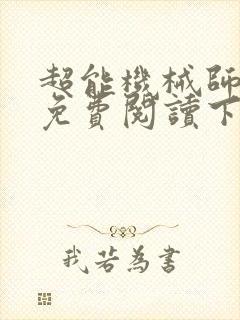 超能機械師
免費閱讀下
我若為書